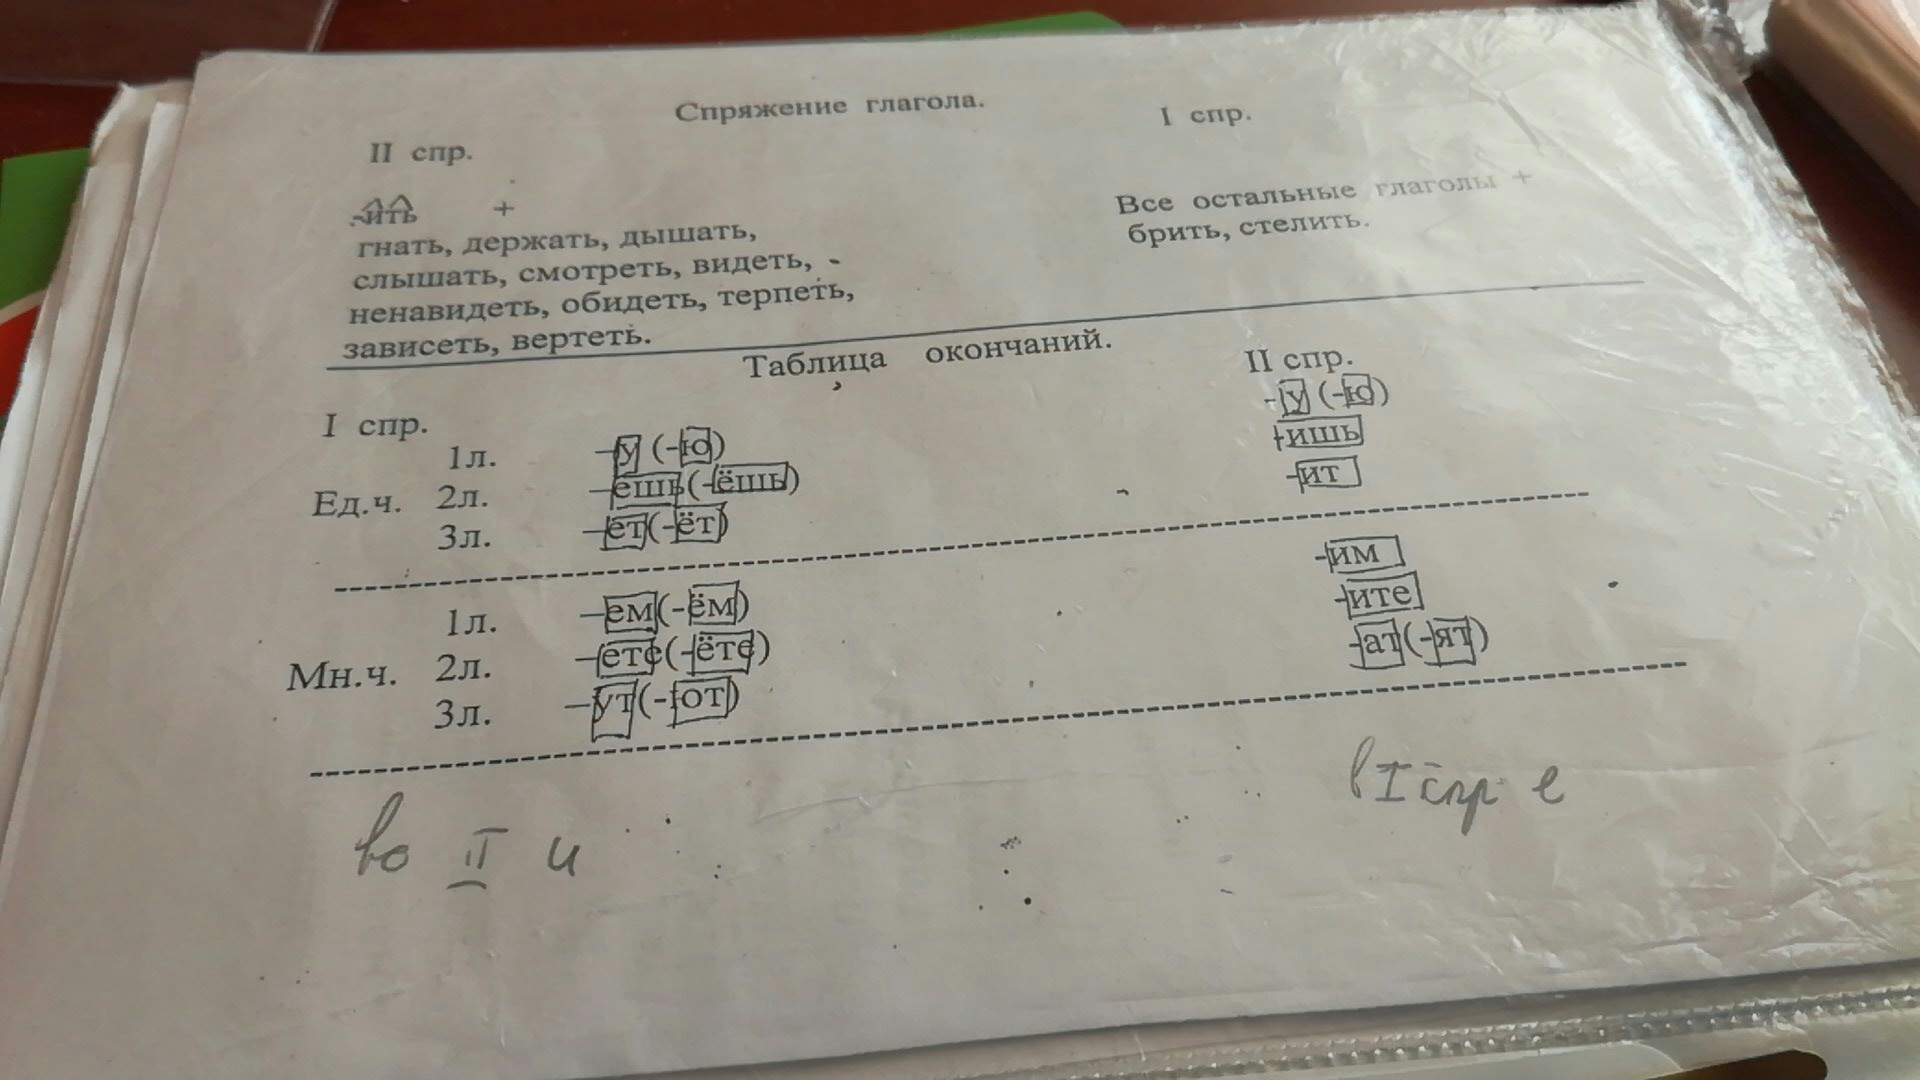 Спряжение глагола.
II спр.
I спр.
-ить +
гнать, держать, дышать,
слышать, смотреть, видеть,
ненавидеть, обидеть, терпеть,
зависеть, вертеть.
Все остальные глаголы +
брить, стелить.
Таблица окончаний.
I спр.
II спр.
1л. -у (-ю) -у (-ю)
Ед.ч. 2л. -ешь (-ёшь) -ишь
3л. -ет (-ёт) -ит
1л. -ем (-ём) -им
Мн.ч. 2л. -ете (-ёте) -ите
3л. -ут (-ют) -ат (-ят)
во II и
в I спр е